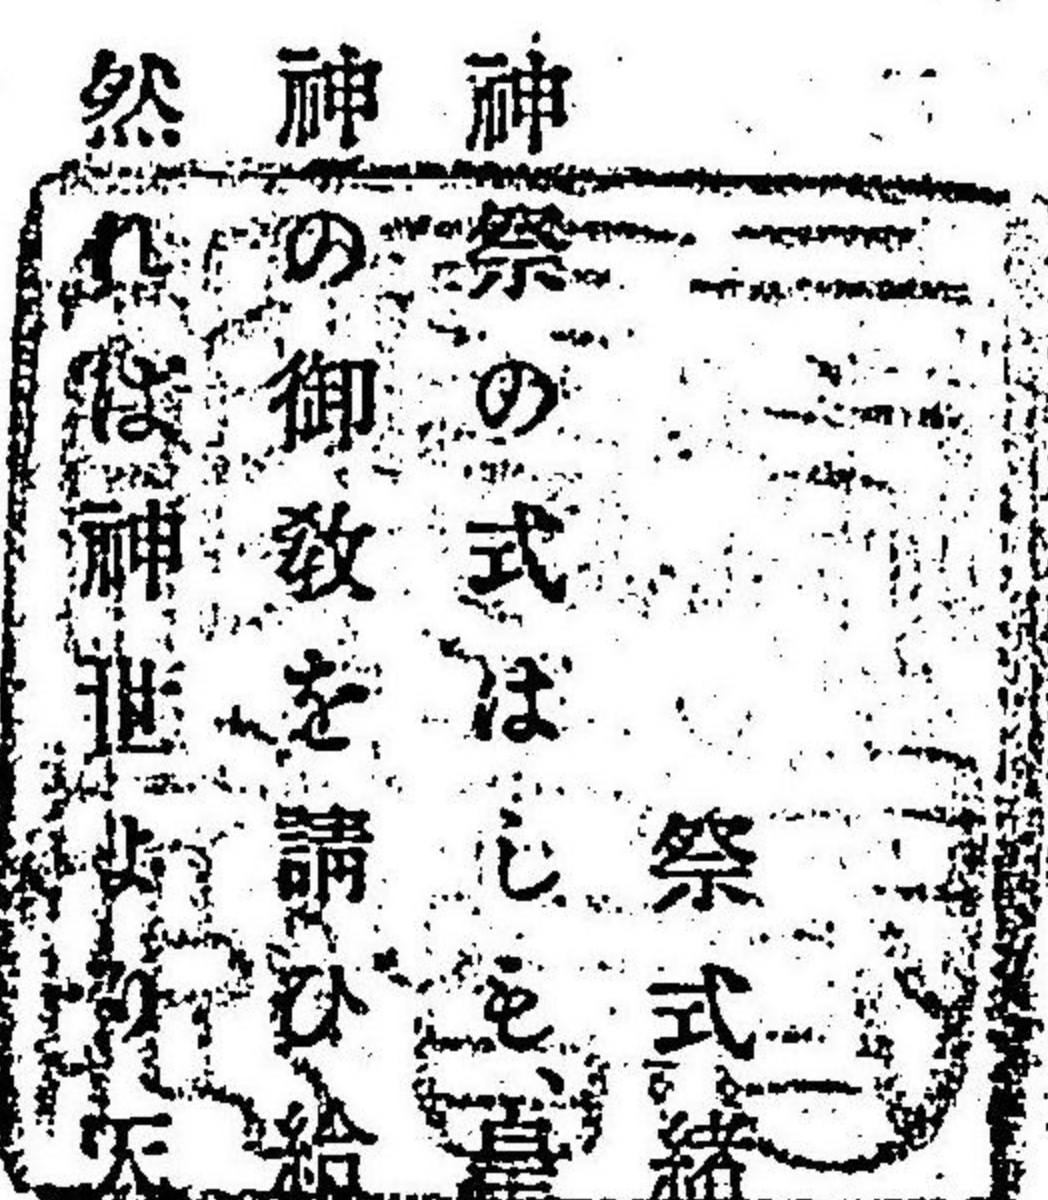 祭式緒
神祭の式はしも、皇
神の御教を請ひ給
然れば神世より天